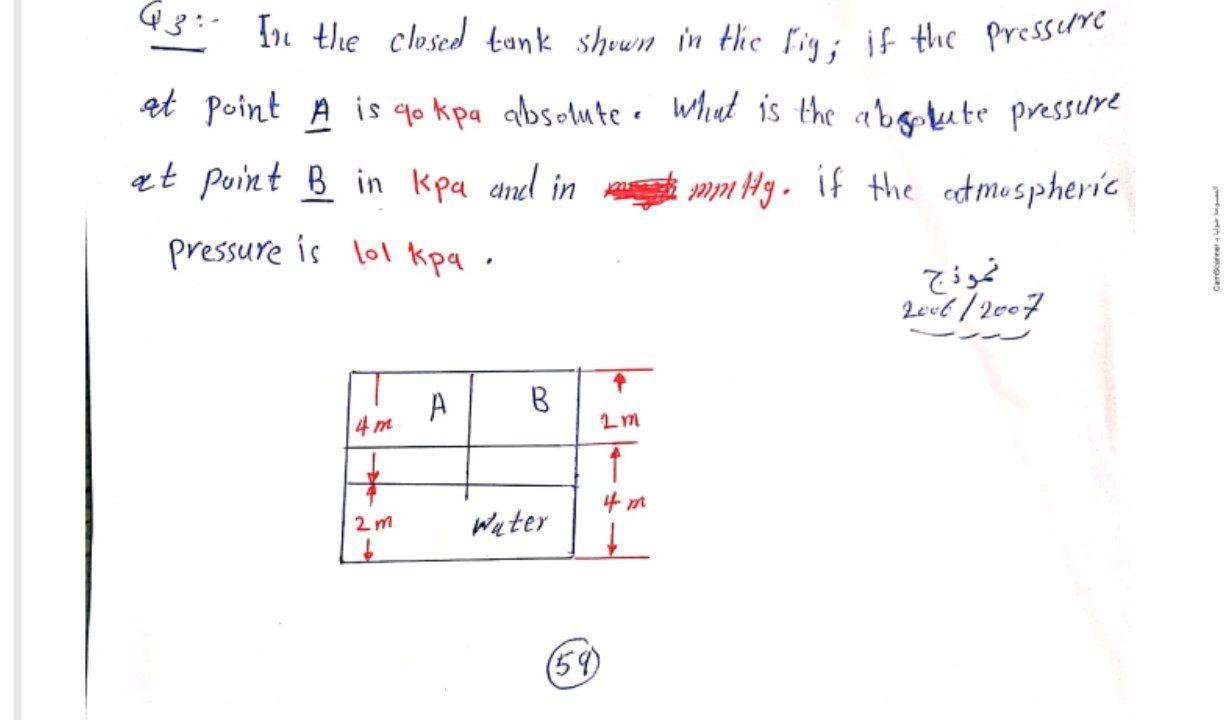 Q3:- In the closed tank shown in the Fig; if the pressure
at point A is 90 kpa absolute. What is the absolute pressure
at point B in kpa and in mmHg. if the atmospheric
pressure is 101 kpa.
نموذج
2006/2007
A B
4m 2m
4 m
2m Water
59
CamScanner